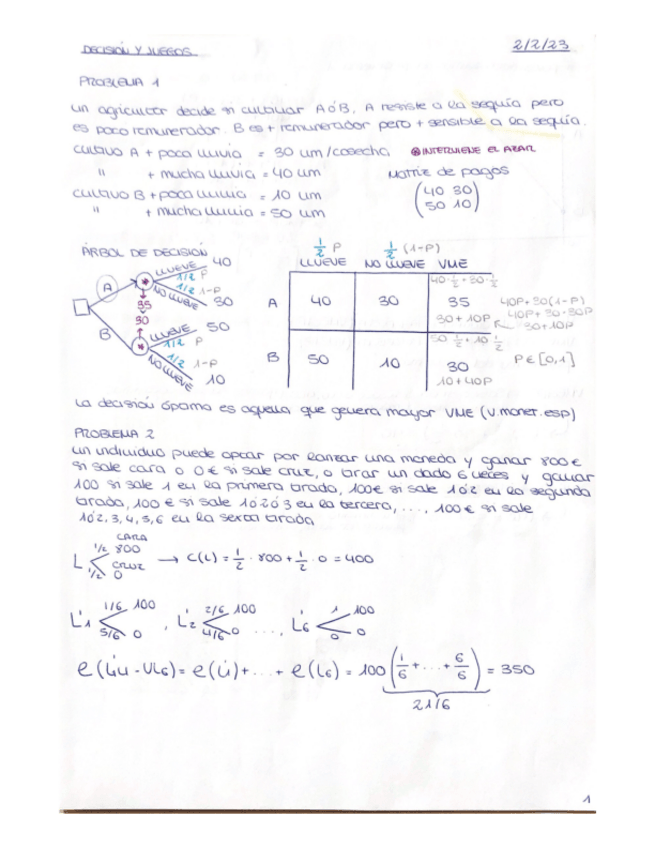 DECISIÓN Y JUEGOS 2/2/23
PROBLEMA 1
un agricultor decide si cultivar A ó B, A resiste a la sequía pero
es poco remunerador. B es + remunerador pero + sensible a la sequía.
cultivo A + poca lluvia = 30 um/cosecha ⊛ INTERVIENE EL AZAR
" + mucha lluvia = 40 um Matriz de pagos
cultivo B + poca lluvia = 10 um (40 30
" + mucha lluvia = 50 um 50 10)
ÁRBOL DE DECISIÓN
A
LLUEVE 40
1/2 P
1/2 1-P
NO LLUEVE 30
35
30
B
LLUEVE 50
1/2 P
1/2 1-P
NO LLUEVE 10
1/2 P 1/2 (1-P)
LLUEVE NO LLUEVE VME
40·1/2+30·1/2
A 40 30 35 40P+30(1-P)
30+10P 40P+30-30P
30+10P
50·1/2+10·1/2
B 50 10 30 P∈[0,1]
10+40P
La decisión óptima es aquella que genera mayor VME (v.monet.esp)
PROBLEMA 2
un individuo puede optar por lanzar una moneda y ganar 800€
si sale cara o 0€ si sale cruz, o tirar un dado 6 veces y ganar
100 si sale 1 en la primera tirada, 100€ si sale 1ó2 en la segunda
tirada, 100 € si sale 1ó2ó3 en la tercera, ..., 100€ si sale
1ó2,3,4,5,6 en la sexta tirada
CARA
L 1/2 800
CRUZ
1/2 0
→ C(L) = 1/2 · 800 + 1/2 · 0 = 400
L'1 1/6 100 5/6 0 , L'2 2/6 100 4/6 0 ..., L'6 1 100 0 0
= e(L'1)+...+ e(L6) = 100(1/6+...+6/6) = 350
21/6
1